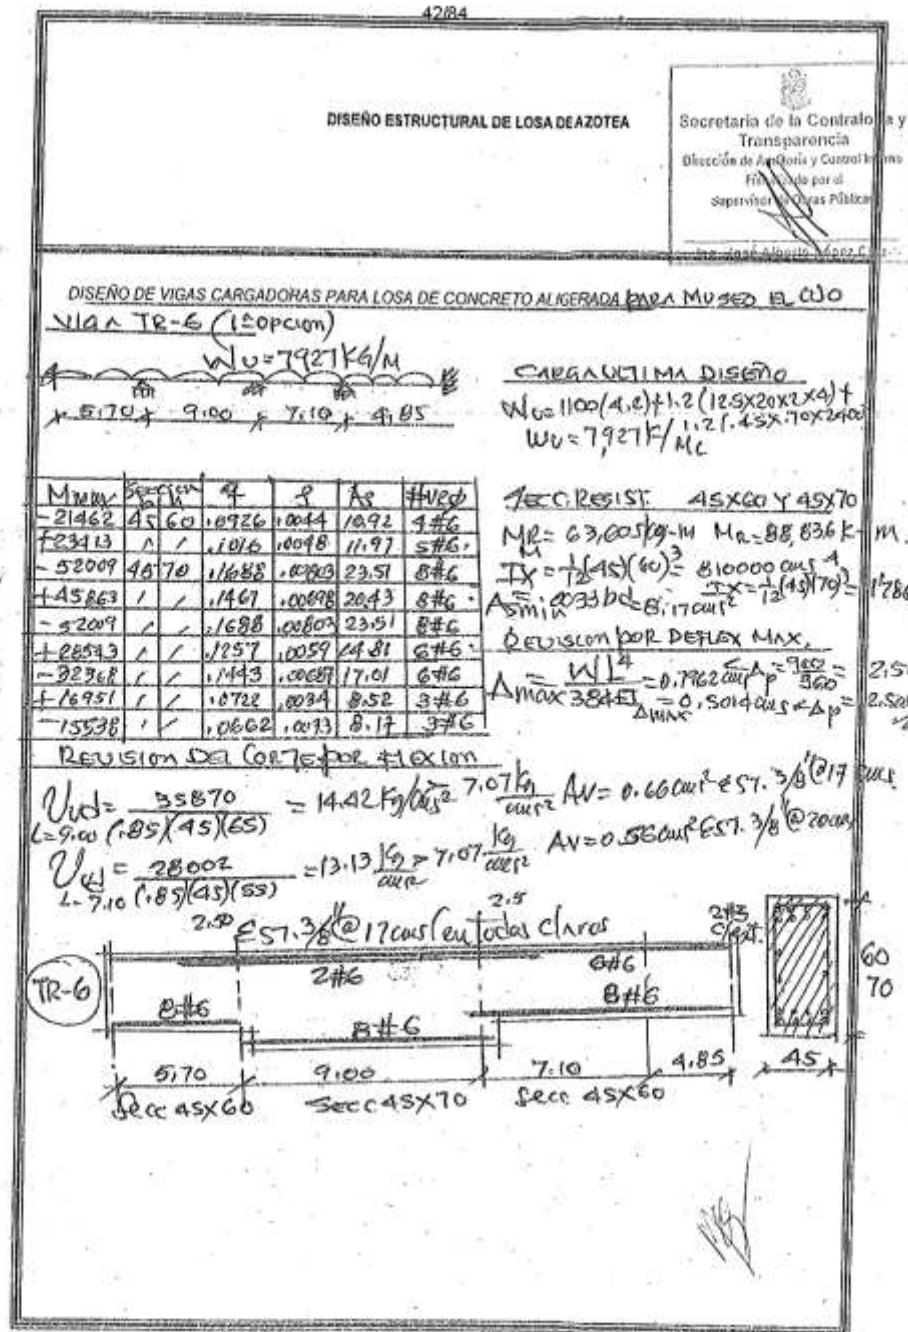 42/84
DISEÑO ESTRUCTURAL DE LOSA DE AZOTEA
Secretaria de la Contraloria y
Transparencia
Dirección de Auditoria y Control Interno
Fiscalizado por el
Supervisor de Obras Públicas
Ing. José Alberto López
DISEÑO DE VIGAS CARGADORAS PARA LOSA DE CONCRETO ALIGERADA PARA MUSEO EL OJO
VIGA TR-6 (1ª OPCION)
WU=7927 KG/M
5.70 9.00 7.10 4.85
CARGA ULTIMA DISEÑO
WU=1100(4.2)+1.2(125X20X2X4)+
1.2(.45X.70X2400
WU=7,927 K/ML
Sección q ρ As #Vs φ
-21462 45 60 .0926 .0044 10.92 4#6
+23413 / / .1016 .0048 11.97 5#6
-52009 45 70 .1688 .00803 23.51 8#6
+45863 / / .1467 .00698 20.43 8#6
-52009 / / .1688 .00803 23.51 8#6
+28593 / / .1257 .0059 14.81 6#6
-32368 / / .1443 .00687 17.01 6#6
+16951 / / .0722 .0034 8.52 3#6
-15538 / / .0662 .0033 8.17 3#6
SECC. RESIST. 45X60 Y 45X70
MR= 63,605 kg-m MR=88,836 K-M.
IX=1/12(45)(60)³= 810000 cms⁴
IX=1/12(45)(70)³=
Asmin=.0033bd=8.17cms²
REVISION POR DEFLEX MAX.
Δmax=WL⁴/384EI=0.7962 cms<Δp=900/360=
Δmax=0.5014cms<Δp=
REVISION DEL CORTE POR FLEXION
Uud=35870/(.85)(45)(65) = 14.42 Kg/cms² 7.07 kg/cms² AV=0.66cms² EST. 3/8"@17 cms
L=9.00
Uud=28002/(.85)(45)(55) =13.13 kg/cms² > 7.07 kg/cms² AV=0.56cms² EST. 3/8"@20cms
L=7.10
2.50 2.5
EST. 3/8"@17cms (en todos claros
2#3
TR-6
2#6 6#6
8#6 8#6 8#6
60
70
5.70 9.00 7.10 4.85 45
Secc 45X60 Secc 45X70 Secc 45X60